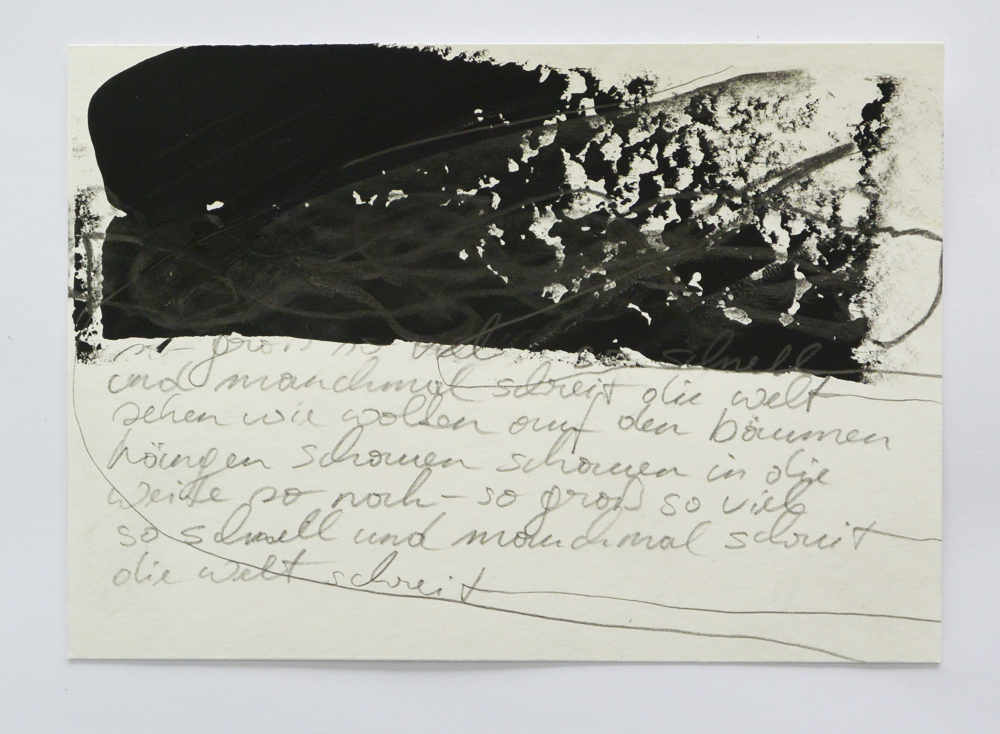 so groß so viel so schnell
und manchmal schreit die welt
sehen wie wolken auf den bäumen
hängen schauen schauen in die
weite so nah – so groß so viel
so schnell und manchmal schreit
die welt schreit